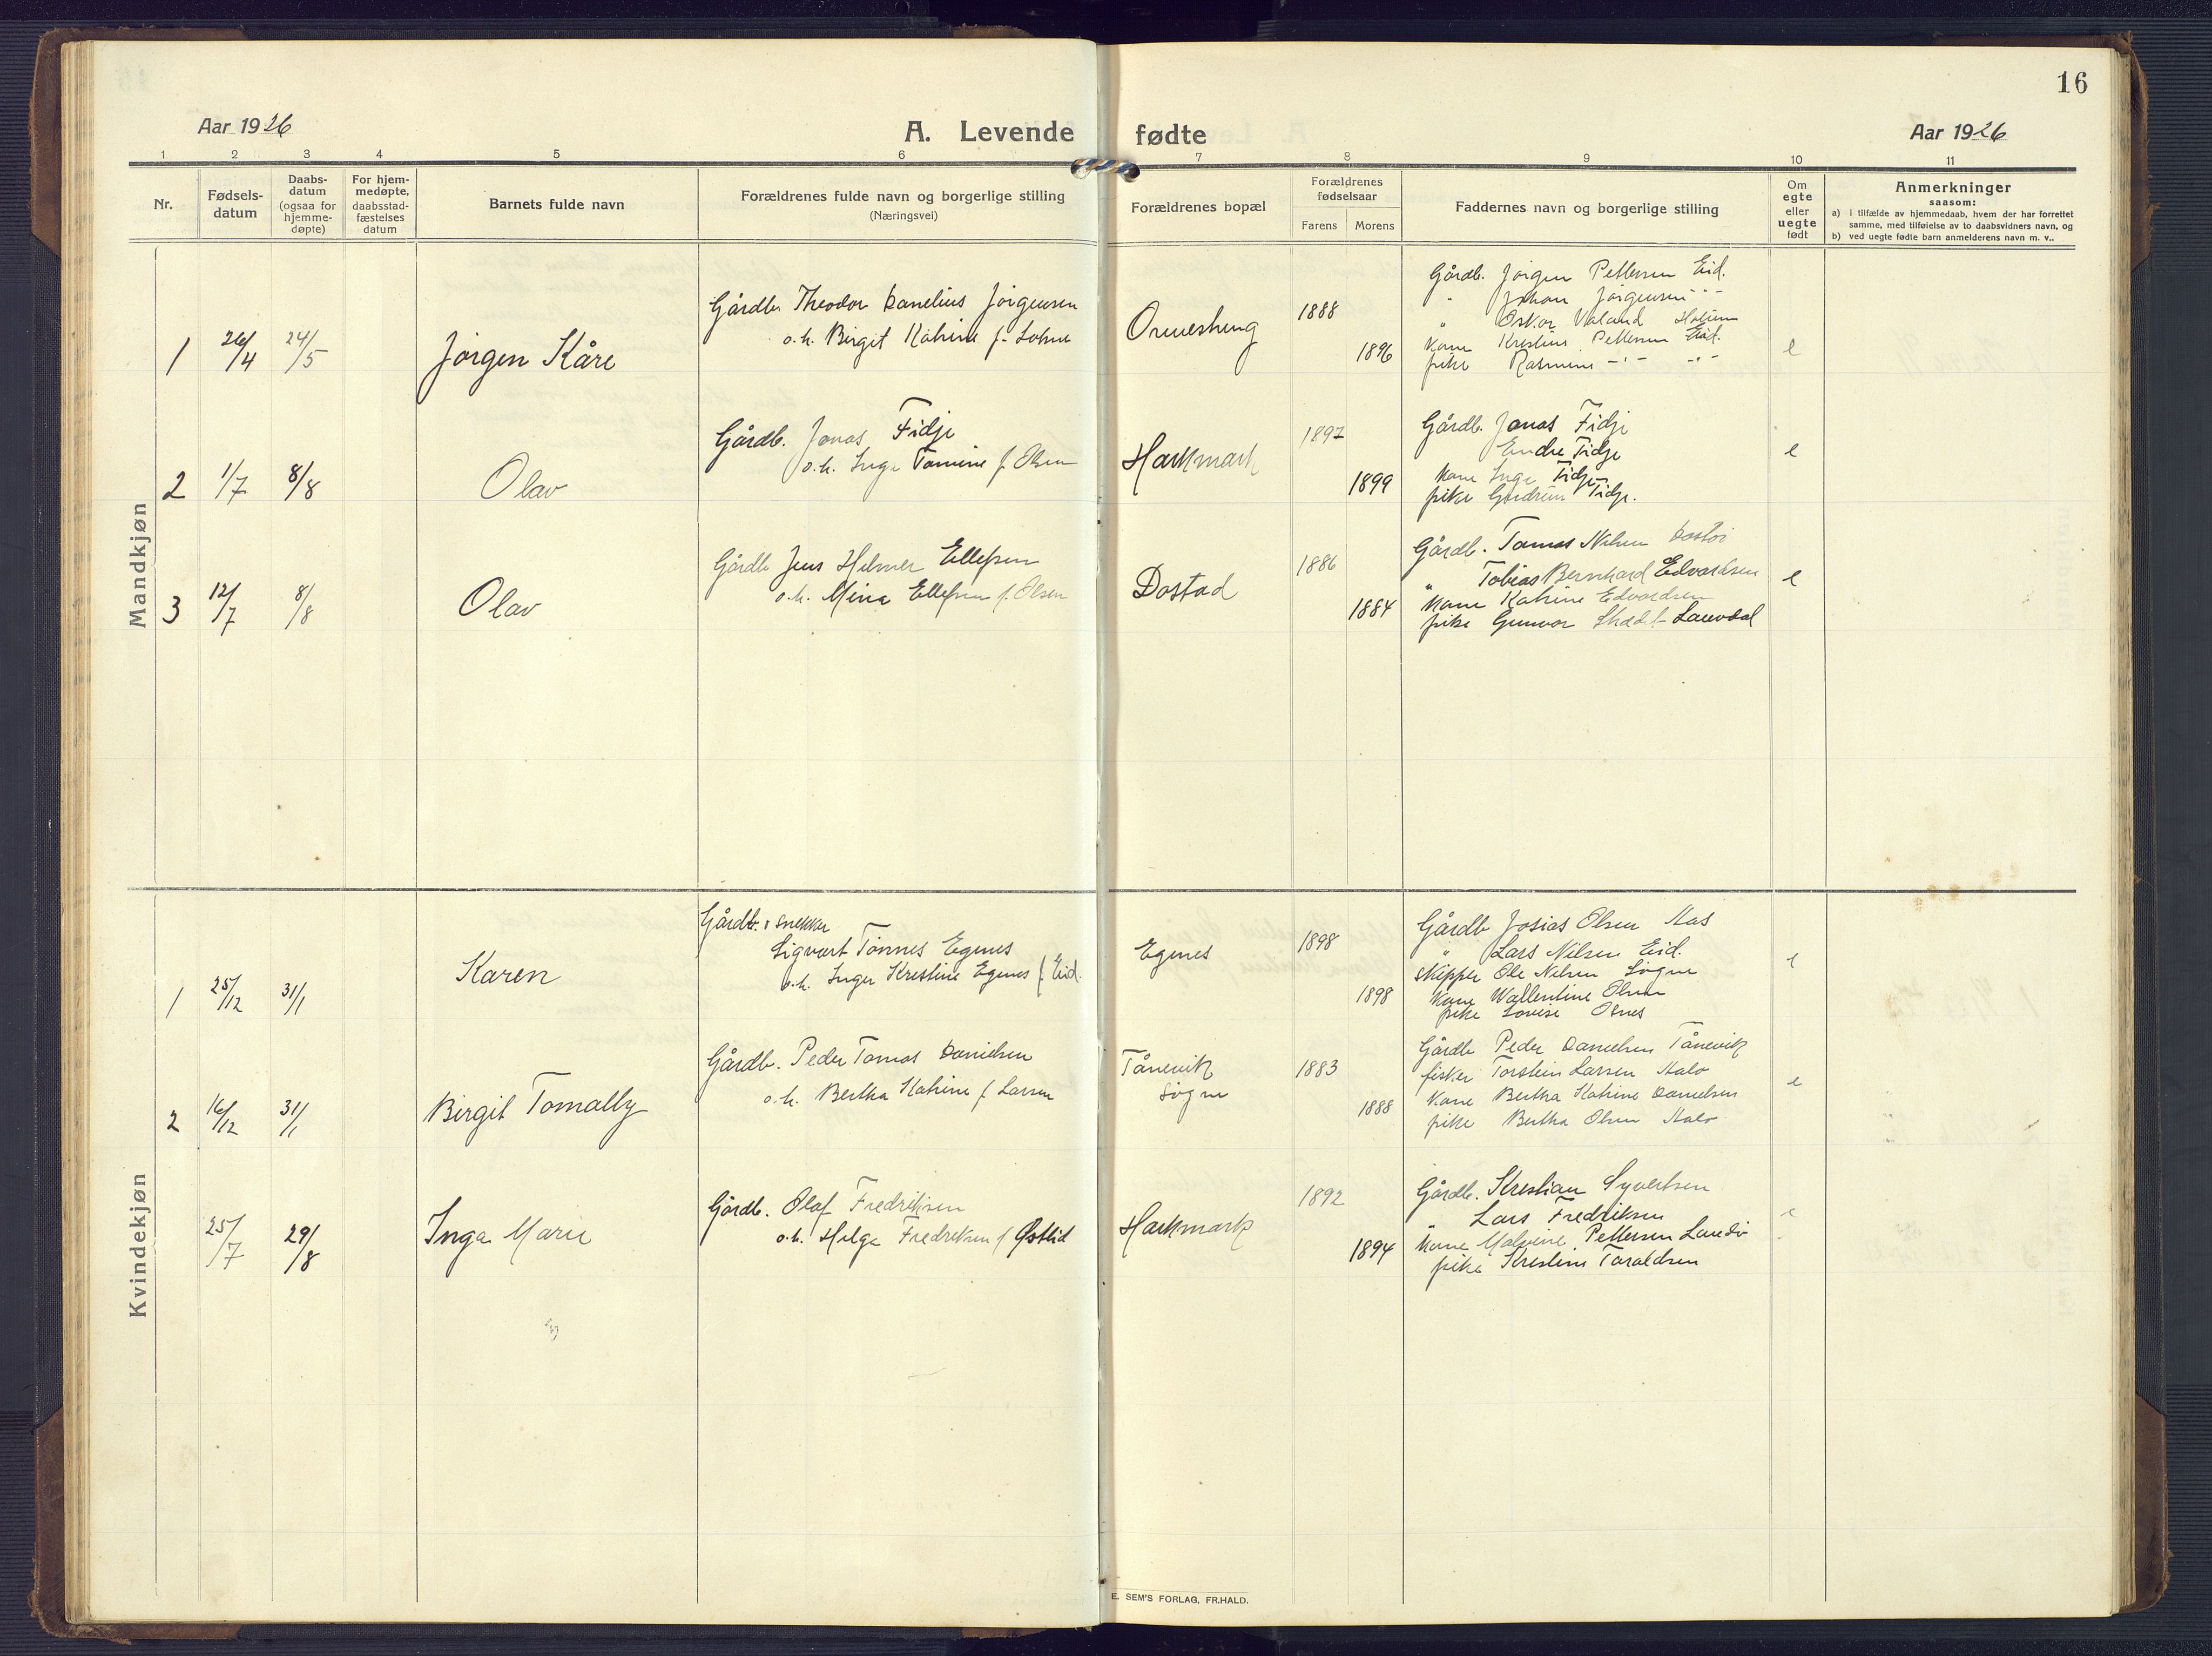 16
Aar 1926
A. Levende fødte
Aar 1926
1 2 3 4 5 6 7 8 9 10 11
Nr.
Fødsels-
datum
Daabs-
datum
(ogsaa for
hjemme-
døpte)
For hjem-
medøpte,
daabsstad-
fæstelses
datum
Barnets fulde navn
Forældrenes fulde navn og borgerlige stilling
(Næringsvei)
Forældrenes bopæl
Forældrenes
fødselsaar
Farens
Morens
Faddernes navn og borgerlige stilling
Om
egte
eller
uegte
født
Anmerkninger
saasom:
a) i tilfælde av hjemmedaab, hvem der har forrettet
samme, med tilføielse av to daabsvidners navn, og
b) ved uegte fødte barn anmelderens navn m. v..
Mandkjøn
1 26/4 24/5
Jørgen Kåre
Gårdb. Theodor Danelius Jørgensen
o.h. Birgit Katrine f.
1888
1896
Gårdb. Jørgen Pettersen Eid.
" Johan Jørgensen " -
" Oskar Valand Holum
Kone Kristine Pettersen Eid.
pike Rasmine -"- -"-
e
2 1/7 8/8
Olav
Gårdb. Jonas Fidje
o.h. Inga Tomine f. Olsen
Harkmark
1897
1899
Gårdb. Jonas Fidje
Endre Fidje
Kone Inga Fidje
pike Gudrun Fidje.
e
3 12/7 8/8
Olav
Gårdb Jens Helmer Ellefsen
o.h. Mina Ellefsen f. Olsen
Dastad
1886
1884
Gårdb. Tomas Nilsen
" Tobias Bernhard Edvardsen
Kone Katrine Edvardsen
pike Gunvor Lauvdal
e
Kvindekjøn
1 25/12 31/1
Karen
Gårdb. & snekker
Sigvart Tønnes Egenes
o.h. Inger Kristine Egenes f. Eid.
Egenes
1898
1898
Gårdb Josias Olsen Aas
" Lars Nilsen Eid.
skipper Ole Nilsen Søgne
Kone Wallentine Olsen
pike Lovise Osnes
e
2 16/12 31/1
Birgit Tomally
Gårdb. Peder Tomas Danielsen
o.h. Bertha Katrine f. Larsen
Tånevik
Søgne
1883
1888
Gårdb Peder Danielsen Tånevik
fisker Torstein Larsen Aalo
Kone Bertha Katrine Danielsen
pike Bertha Olsen Aalo
e
25/7 29/8
Inga Marie
Gårdb. Olaf Fredriksen
o.h. Helga Fredriksen f Østlid
Harkmark
1892
1894
Gårdb. Kristian Syvertsen
" Lars Fredriksen
Kone Malvine Pettersen Landø
pike Kristine Taraldsen
e
E. SEM'S FORLAG, FR.HALD.